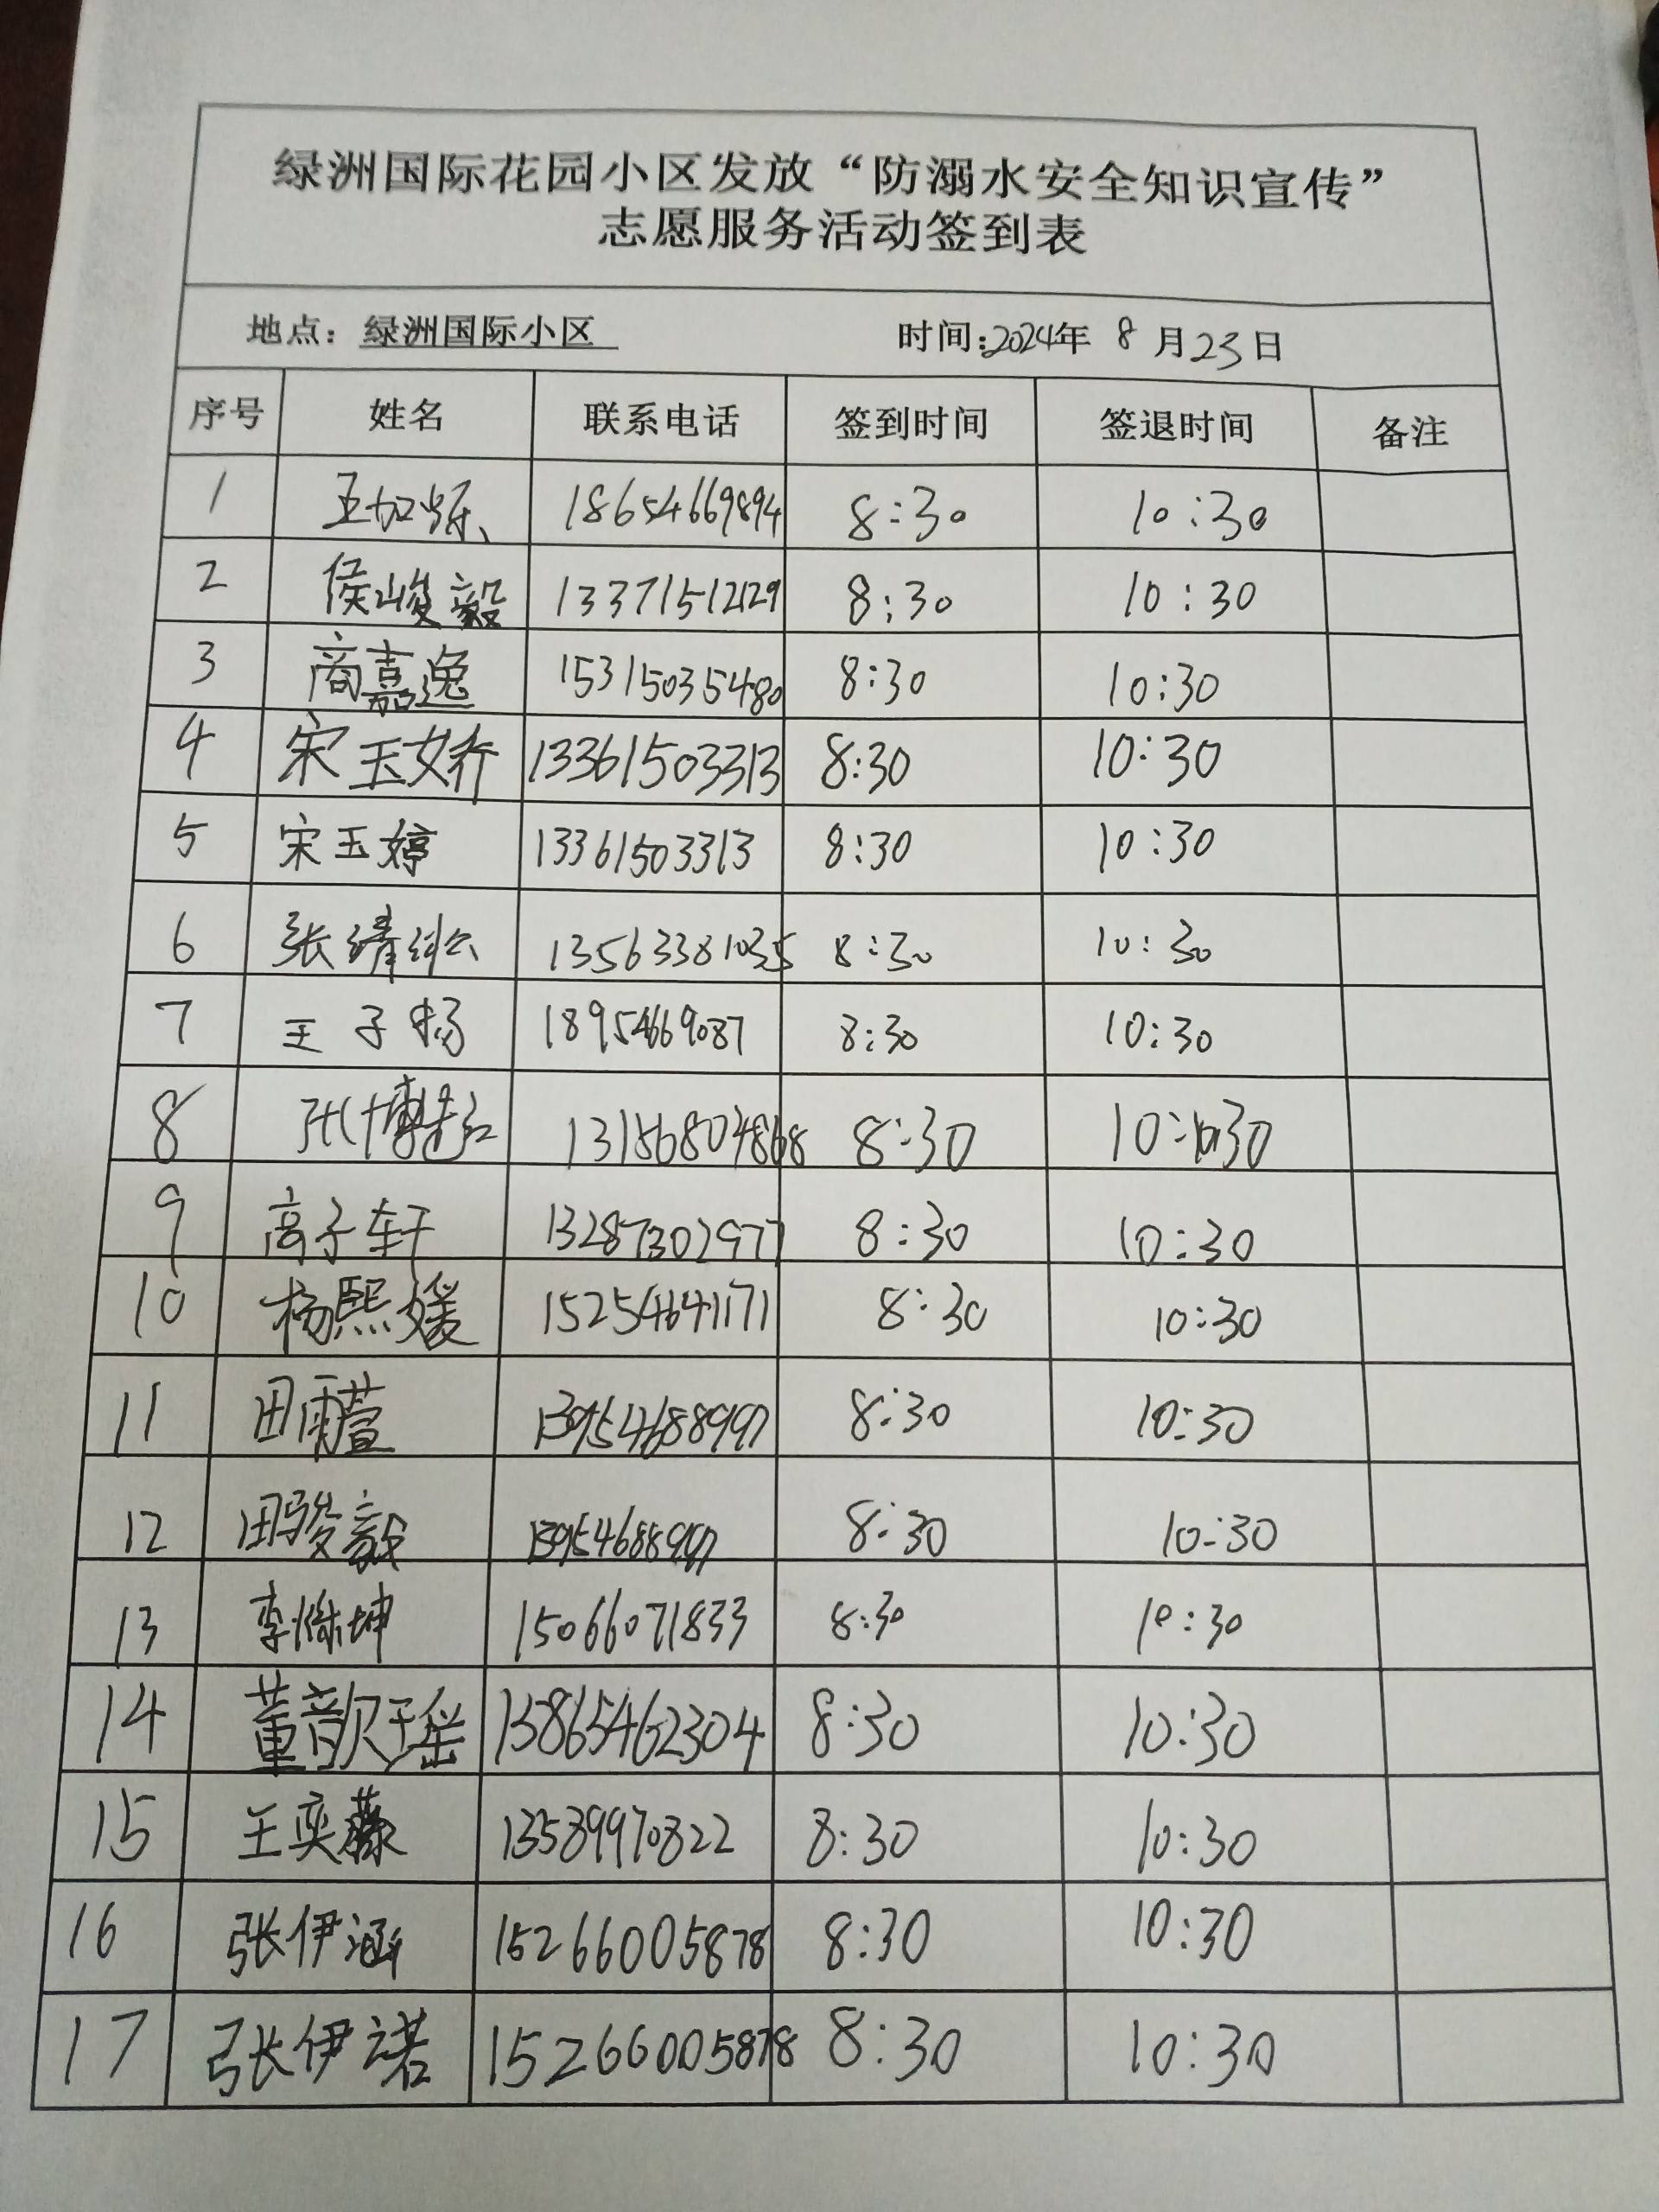 绿洲国际花园小区发放“防溺水安全知识宣传”
志愿服务活动签到表
地点：绿洲国际小区 时间:2024年 8 月23日
序号 姓名 联系电话 签到时间 签退时间 备注
1 18654669894 8:30 10:30
2 侯峻毅 13371512129 8:30 10:30
3 商嘉逸 15315035480 8:30 10:30
4 宋玉娇 13361503313 8:30 10:30
5 宋玉婷 13361503313 8:30 10:30
6 13563381035 8:30 10:30
7 王子杨 18954669087 8:30 10:30
8 13156804868 8:30 10:30
9 高子轩 13287302977 8:30 10:30
10 杨熙媛 15254641171 8:30 10:30
11 田雨萱 13954688997 8:30 10:30
12 田骏毅 13954688997 8:30 10:30
13 15066071833 8:30 10:30
14 董歆瑶 13865462304 8:30 10:30
15 王奕藤 13589970822 8:30 10:30
16 张伊涵 15266005878 8:30 10:30
17 张伊诺 15266005878 8:30 10:30